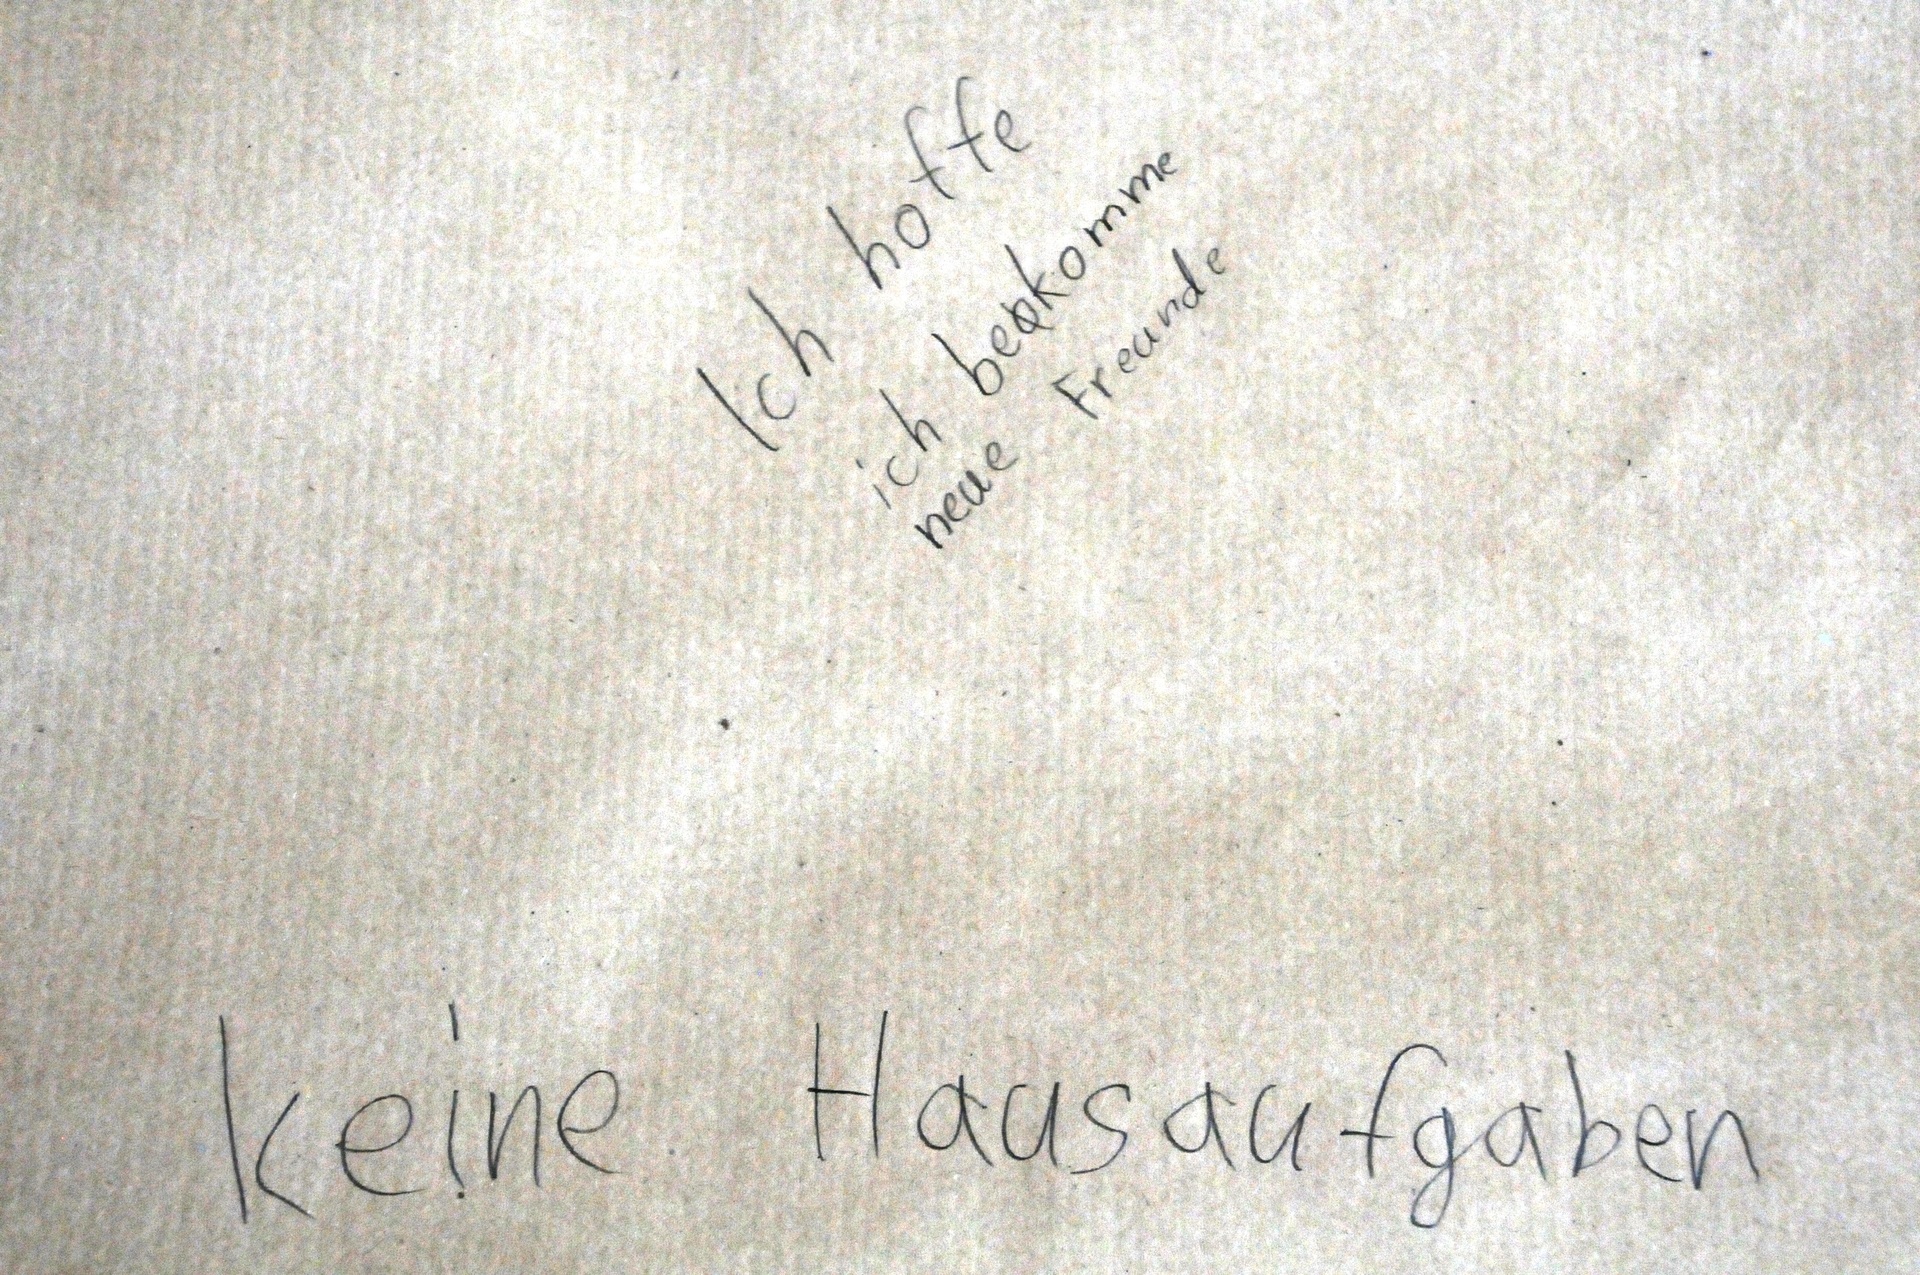 Ich hoffe
ich bekomme
neue Freunde
keine Hausaufgaben